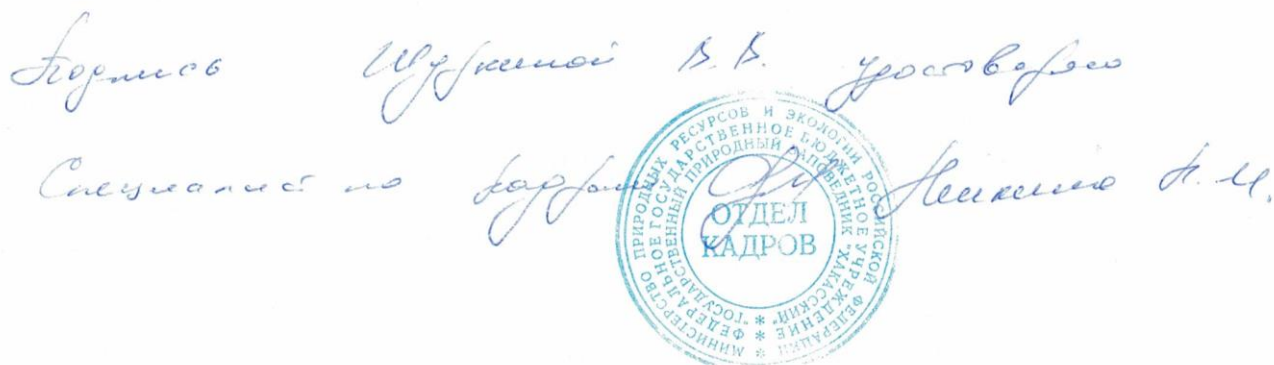 Подпись Шуркиной В.В. удостоверяю
Специалист по кадрам Никина Н.М.
МИНИСТЕРСТВО ПРИРОДНЫХ РЕСУРСОВ И ЭКОЛОГИИ РОССИЙСКОЙ ФЕДЕРАЦИИ *
ФЕДЕРАЛЬНОЕ ГОСУДАРСТВЕННОЕ БЮДЖЕТНОЕ УЧРЕЖДЕНИЕ *
"ГОСУДАРСТВЕННЫЙ ПРИРОДНЫЙ ЗАПОВЕДНИК "ХАКАССКИЙ" *
ОТДЕЛ
КАДРОВ